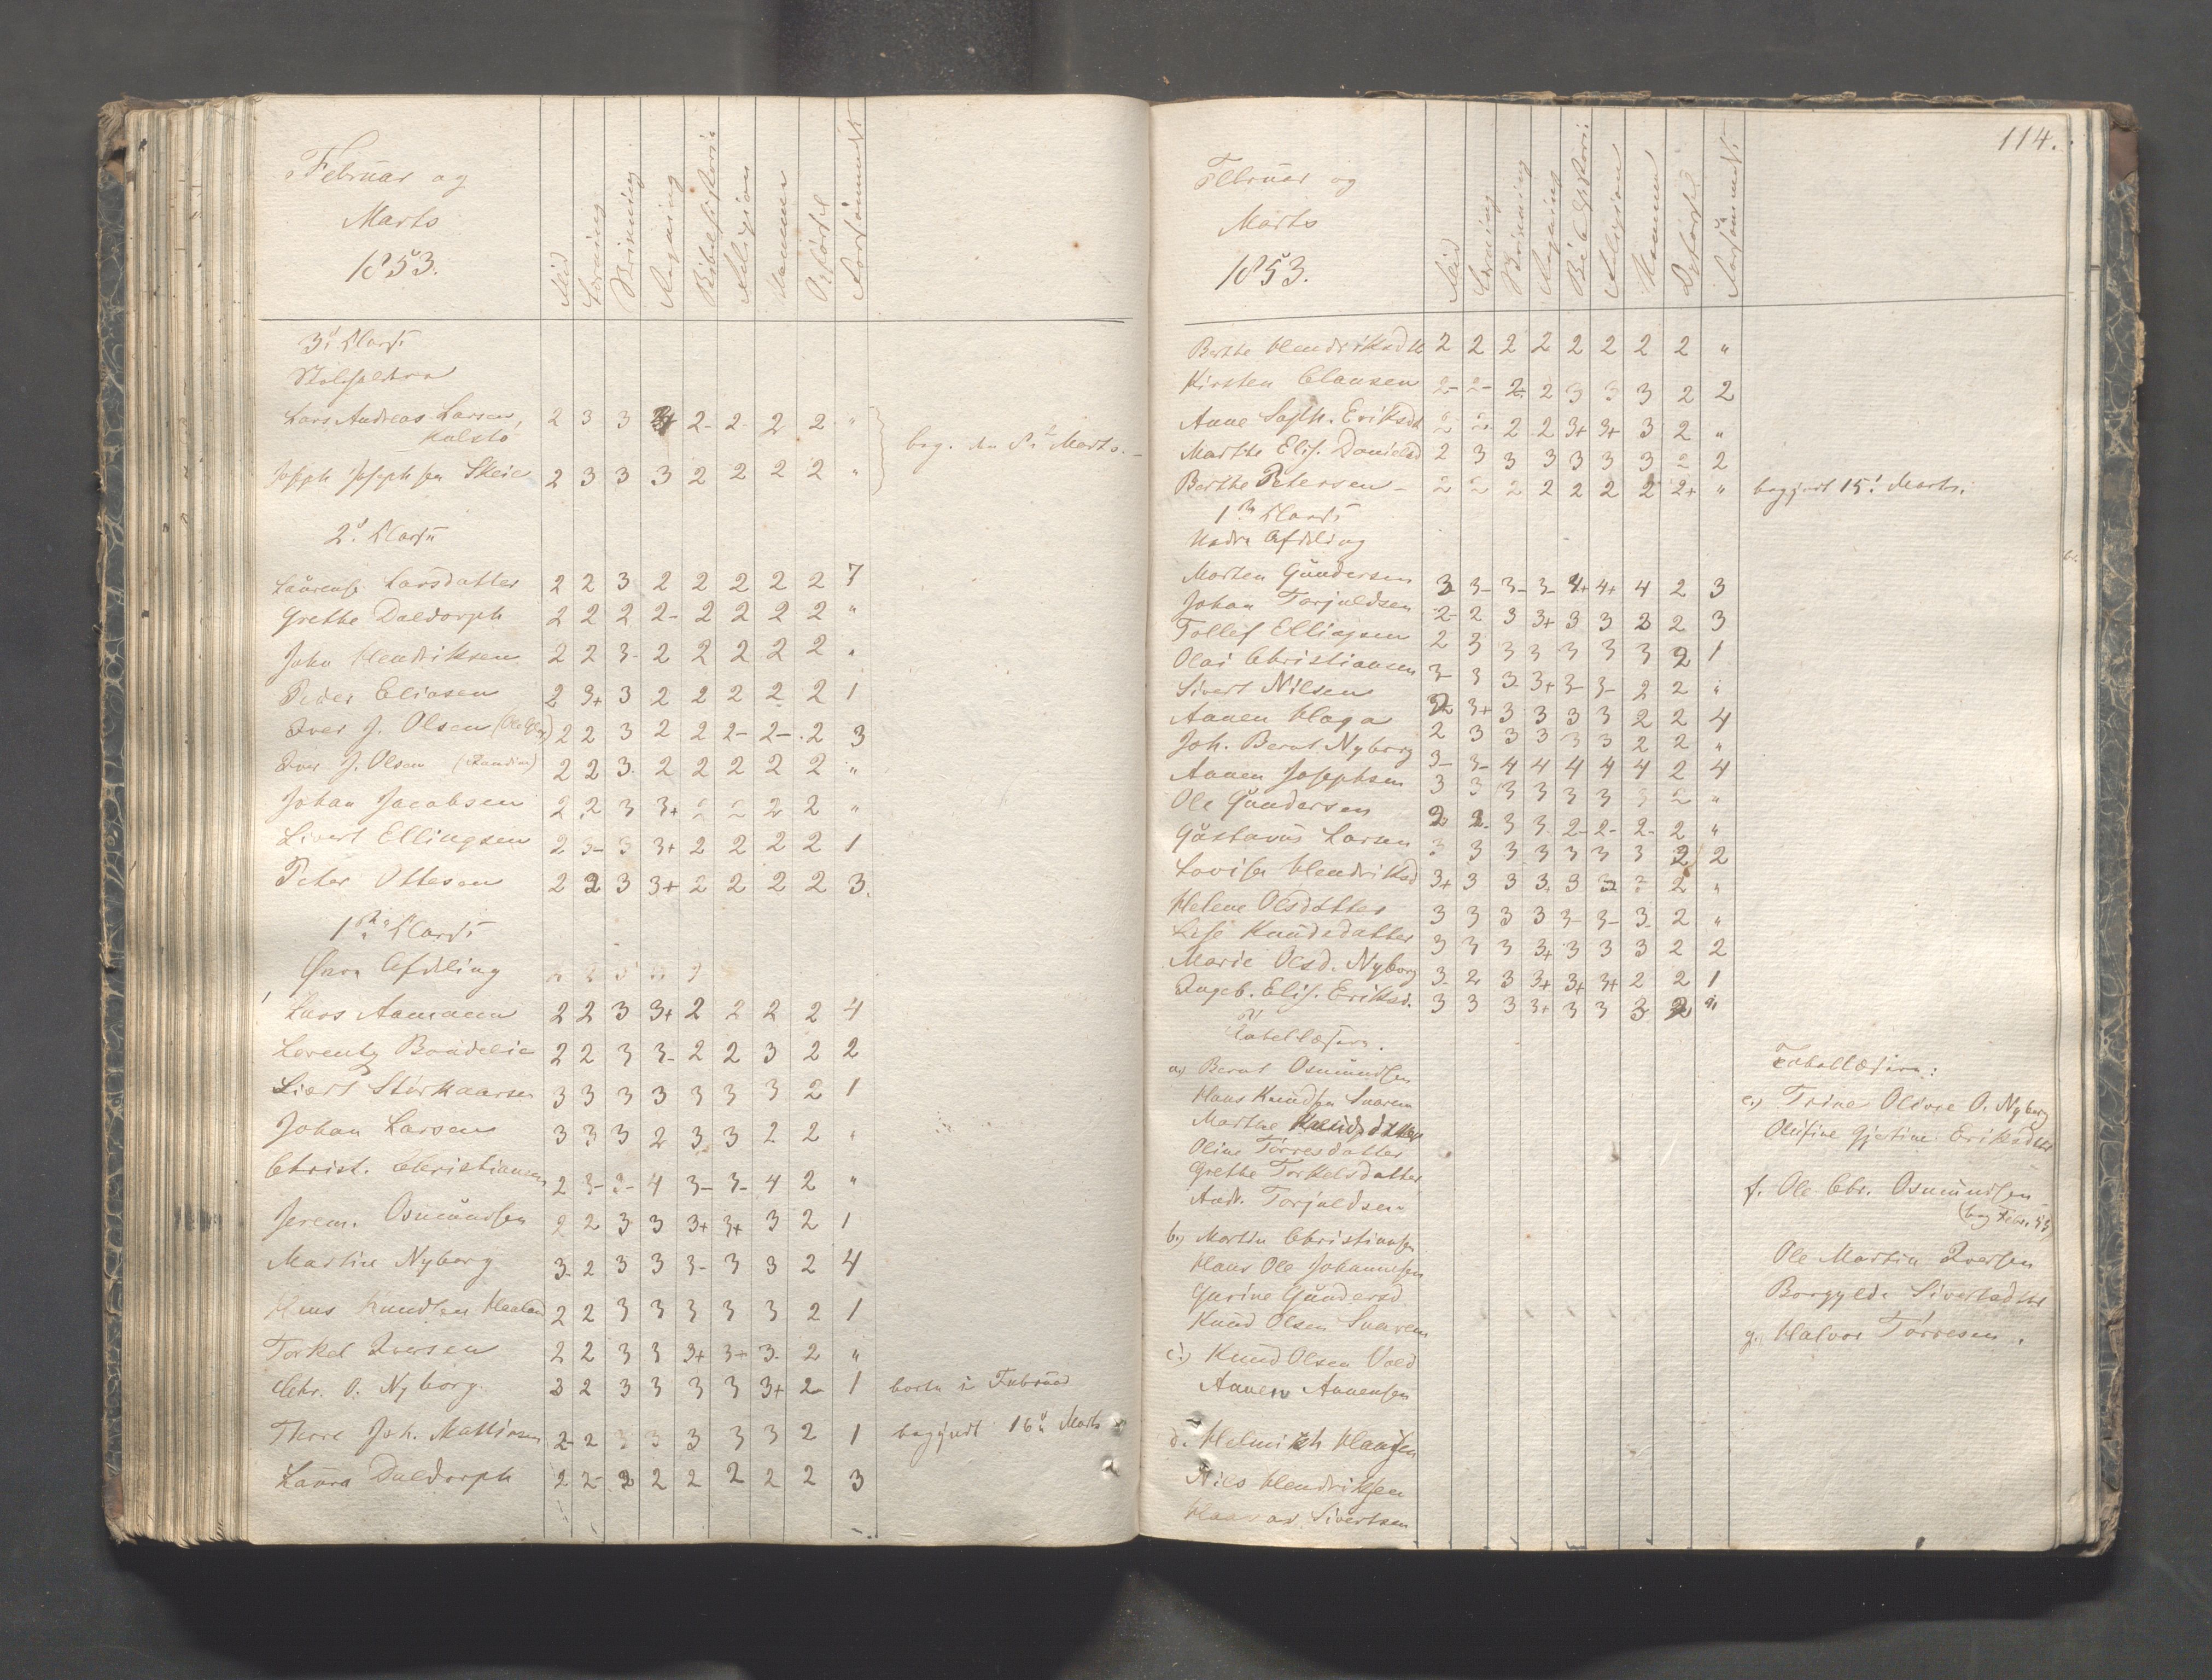 Februar og
Marts
1853.
Flid
Skrivning
Regning
Bibelhistorie
Religion
Opførsel
Forsømmelse
3die Klasse
Lars Andreas Larsen, 2 3 3 2- 2- 2 2 "
Kolstø
beg. den 8de Marts.
Joseph Josephsen Skeie 2 3 3 3 2 2 2 2 "
2den Klasse
Laurense Larsdatter 2 2 3 2 2 2 2 2 7
Grethe Daldorph 2 2 2 2- 2 2 2 2 "
John Hendriksen 2 2 3- 2 2 2 2 2 "
Peder Eliasen 2 3+ 3 2 2 2 2 2 1
Iver J. Olsen 2 2 3 2 2 2- 2- 2 3
Iver J. Olsen 2 2 3 2 2 2 2 2 "
Johan Jacobsen 2 2 3 3+ 2 2 2 2 "
Sivert Ellingsen 2 3- 3 3+ 2 2 2 2 1
Peter Ottesen 2 2 3 3+ 2 2 2 2 3.
1ste Klasse
Øvre Afdeling
Lars Aamann 2 2 3 3+ 2 2 2 2 4
Lorentz Baudelie 2 2 3 3- 2 2 3 2 2
Liert Storkaarsen 3 3 3 3 3 3 3 2 1
Johan Larsen 3 3 3 2 3 3 2 2 "
Christ. Christiansen 2 3- 3- 4 3- 3- 4 2 "
Jerem. Osmundsen 2 2 3 3 3+ 3+ 3 2 1
Martin Nyborg 3- 2 3 3 3- 3 3 2 4
Hans Knudsen Haaland 2 2 3 3 3 3 3 2 1
Torkel Iversen 2 2 3 3 3+ 3- 3- 2 "
Chr. O. Nyborg 3 2 3 3 3 3 3+ 2- 1 borte i Februar
Thore Joh. Mathiasen 2- 2 3 3 3 3 3 2 1 begyndt 16de Marts
Laura Daldorph 2 2- 2 2 2 2 2 2 3
114.
Februar og
Marts
1853.
Flid
Skrivning
Regning
Bibelhistorie
Religion
Opførsel
Forsømmelse
Berthe Hendriksdtr 2 2 2 2 2 2 2 2 "
Kirsten Clausen 2- 2- 2- 2 3 3 3 2 2
Anne Soph. Eriksdt 2 2 2 2 3+ 3+ 3 2 "
Marthe Elis. Danielsd 2 3 3 3 3 3 3 2 2
Berthe Petersen 2 2 2 2 2 2 2 2+ " begyndt 15de Marts.
1ste Klasse
Nedre Afdeling
Morten Gundersen 3 3- 3- 3- 4+ 4+ 4 2 3
Johan Torjuldsen 2- 2 3 3+ 3 3 3 2 3
Tollef Ellingsen 2 3 3 3 3 3 3 2 1
Olai Christiansen 3- 3 3- 3+ 3- 3- 2 2 "
Sivert Nilsen 3+ 3 3 3 3 2 2 4
Aanen Haga 2 3 3 3 3 3 2 2 "
Joh. Bernt Nyborg 3- 3- 4 4 4 4 4 2 4
Aanen Josephsen 3 3 3 3 3 3 3 2 "
Ole Gundersen 2 2- 3 3 2- 2- 2- 2 "
Gustavus Larsen 3 3 3 3 3 3 3 2 2
Lovise Hendriksd 3+ 3 3 3 3 2 "
Helene Olsdatter 3 3 3 3 3- 3- 3- 2 "
Lise Knudsdatter 3 3 3 3+ 3 3 3 2 2
Marie Olsd. Nyborg 3- 2 3 3+ 3+ 3+ 2 2 1
Ingeb. Elis. Eriksd. 3 3 3 3+ 3 3 3 2 "
Tabellæsere.
a.) Bernt Osmundsen
Hans Knudsen Snarem
Marthe Knudsdatter
Oline Tørresdatter
Grethe Torkelsdatter
Andr. Torjuldsen
b.) Martin Christiansen
Hans Ole Johannesen
Gurine Gundersd
Knud Olsen Snarem
c.) Knud Olsen Vold
Aanen Aanensen
d. Helmich Hansen
Nils Hendriksen
Haavar Sivertsen
Tabellæsere:
e.) Trine Olivie O. Nyborg
Olufine Gjertine Eriksdtr
f. Ole Chr. Osmundsen
(beg Febr. 53)
Ole Martin Iversen
Borgylde Sivertsdtr
g. Halvor Tørresen.